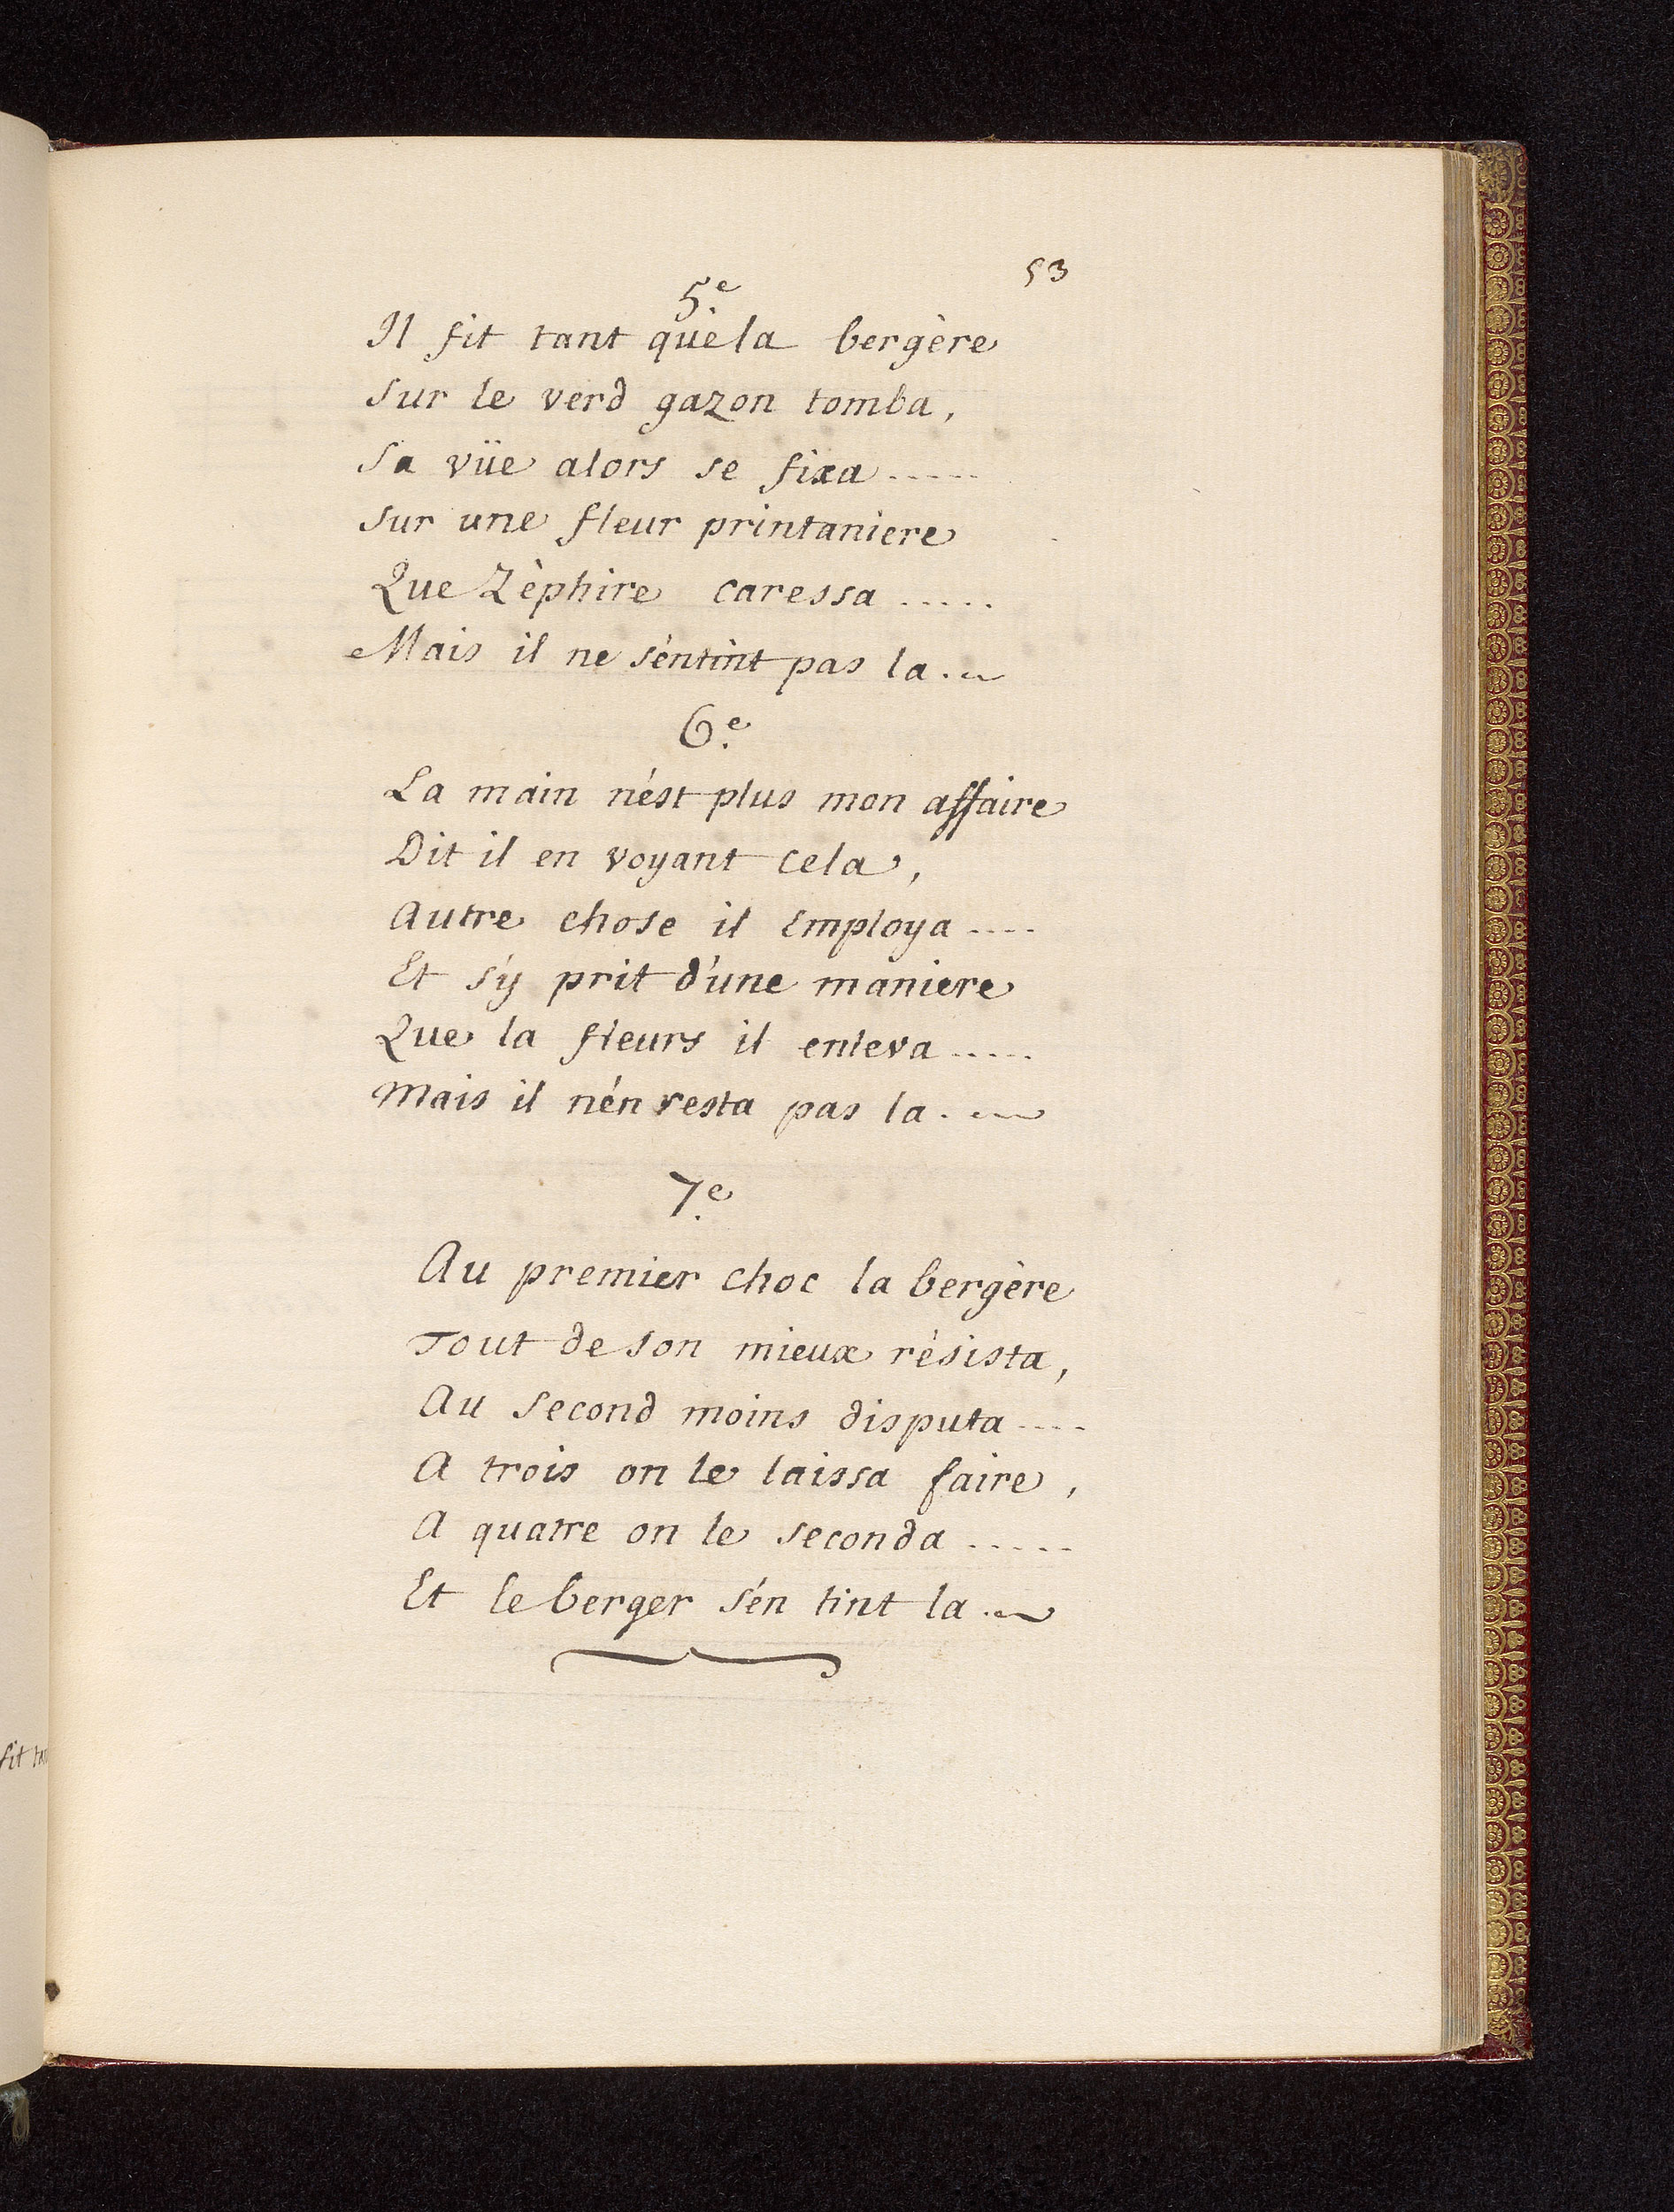 53
5.e
Il fit tant quèla bergère
Sur le verd gazon tomba,
Sa vüe alors se fixa .....
Sur une fleur printaniere
Que Zèphire caressa .....
Mais il ne s'éntint pas la.
6.e
La main n'ést plus mon affaire
Dit il en voyant cela,
Autre chose il Employa ....
Et s'y prit d'une maniere
Que la fleurs il enleva .....
Mais il n'én resta pas la.
7.e
Au premier choc la bergère
Tout de son mieux résista,
Au second moins disputa ....
A trois on le laissa faire,
A quatre on le seconda .....
Et le berger s'én tint la.
fit tan